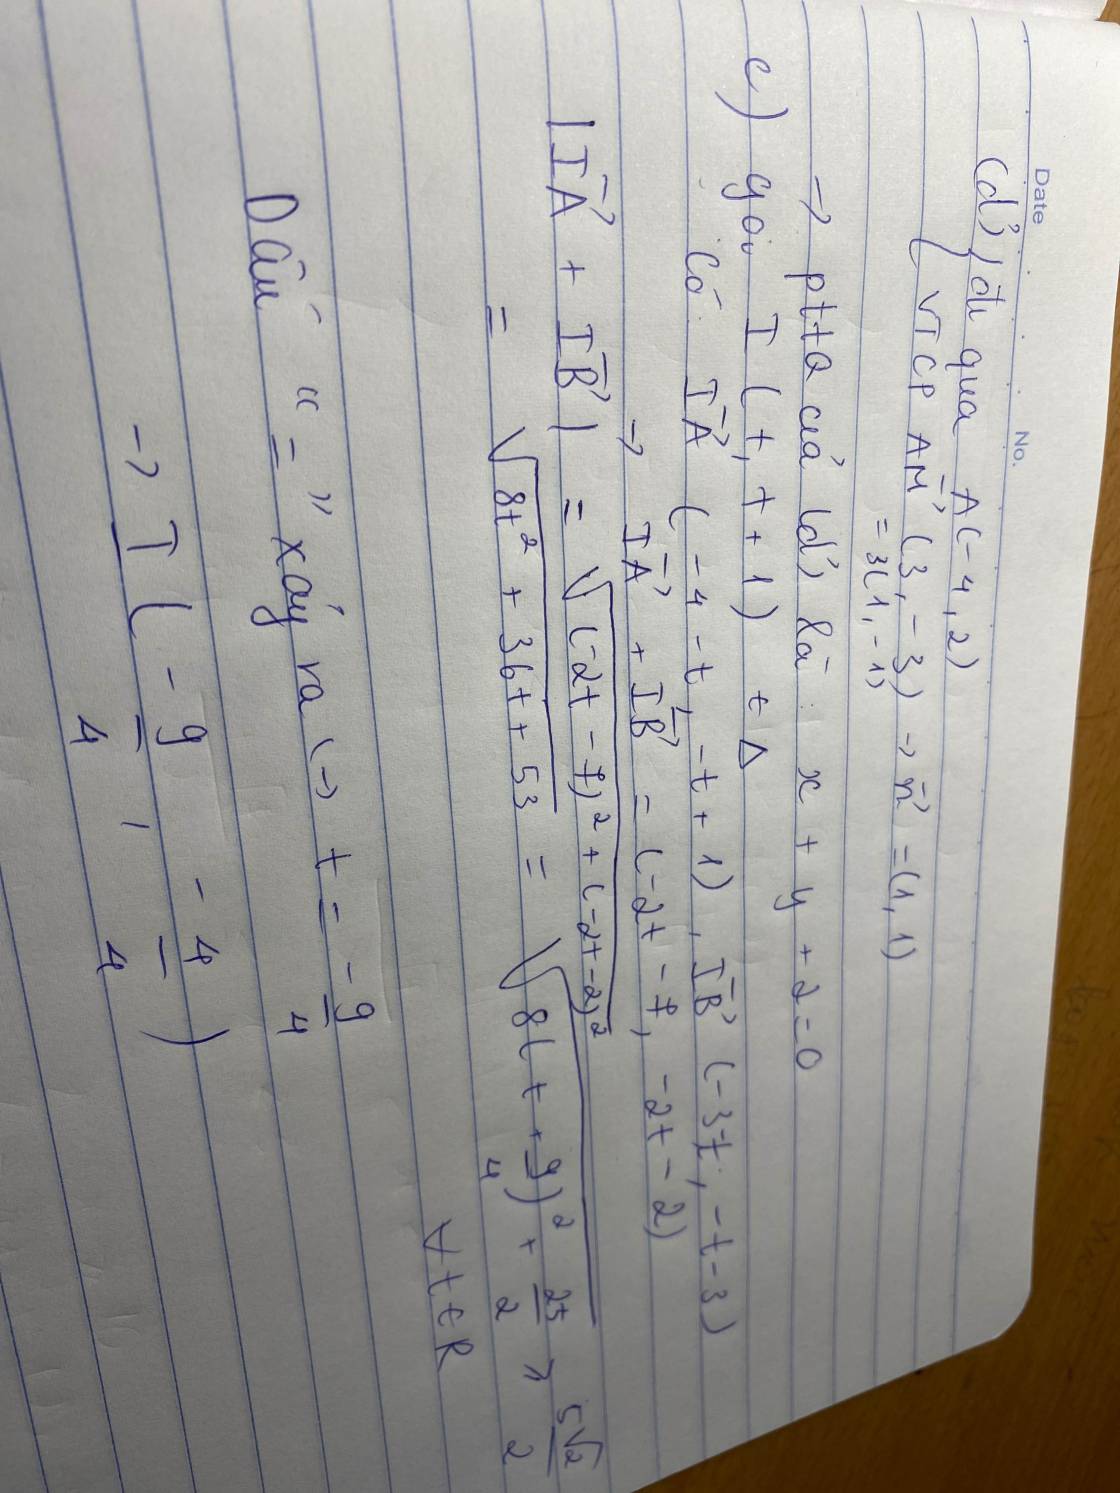 Date No.
(d') đi qua A(-4, 2)
VTCP AM→ (3, -3) → n→ = (1, 1)
= 3(1, -1)
→ pttQ của (d') là: x + y + 2 = 0
c) gọi I (t, t + 1) ∈ Δ
Có IA→ (-4 - t, -t + 1), IB→ (-3-t, -t-3)
→ IA→ + IB→ = (-2t - 7, -2t - 2)
|IA→ + IB→| = √((-2t - 7)² + (-2t-2)²)
= √(8t² + 36t + 53) = √(8(t + 9/4)² + 25/2) ≥ 5√2/2
∀t∈R
Dấu "=" xảy ra (→ t = -9/4
→ I (-9/4, -4/4)